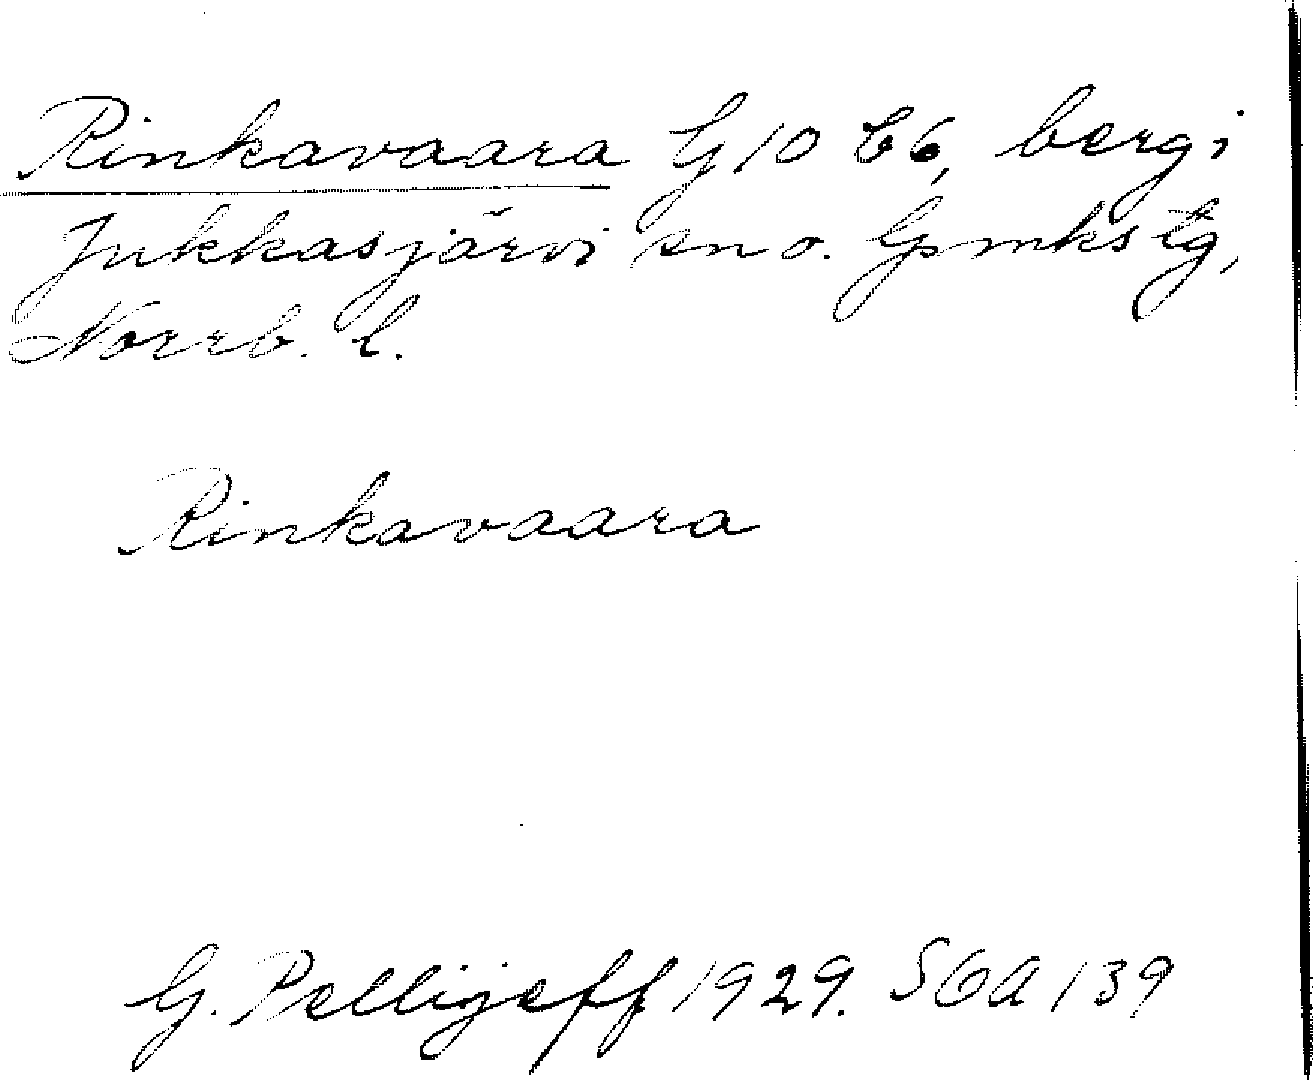 Rinkavaara G 10 C6, berg i
Jukkasjärvi sn o. Gpmkstg,
Norrb. l.
Rinkavaara
G. Pellijeff 1929. SOA 139